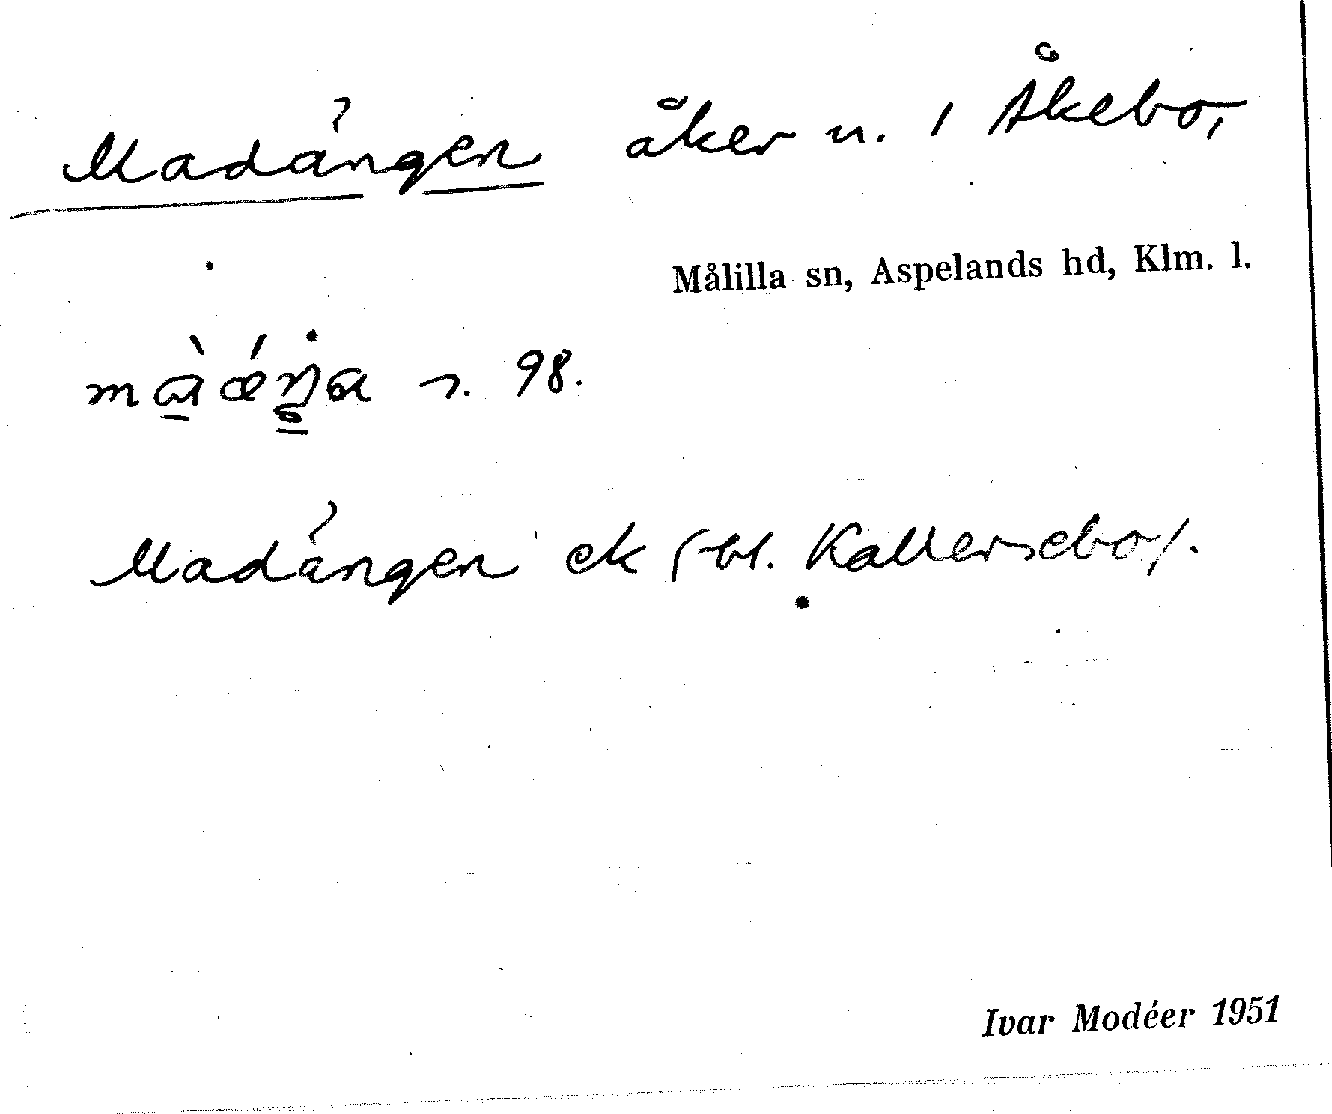 Madängen åker n. i Åkebo,
Målilla sn, Aspelands hd, Klm. l.
98.
Madängen ek (bl. Kallersebo).
Ivar Modéer 1951